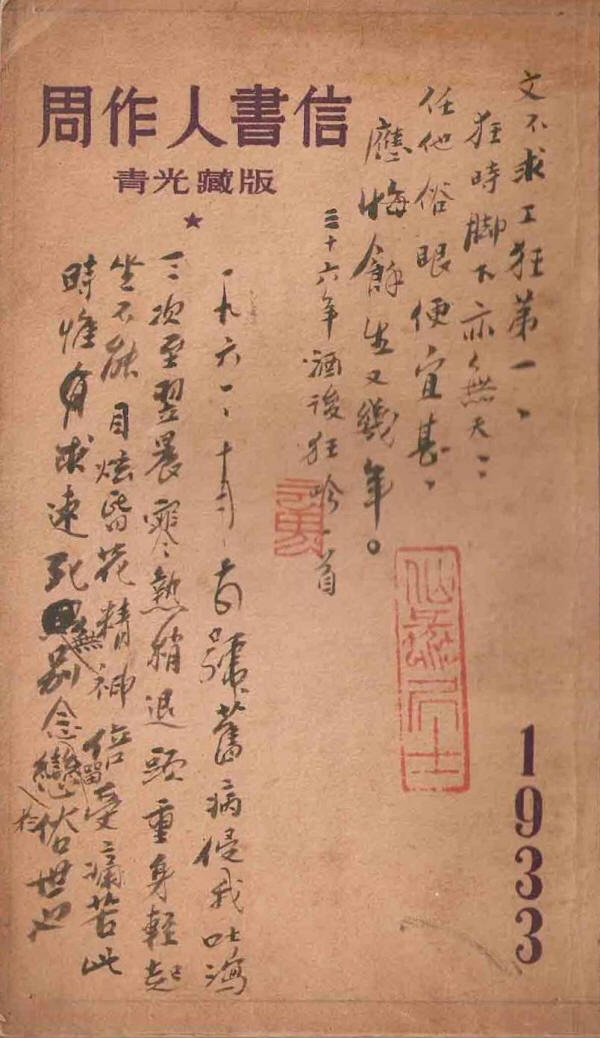 周作人書信
青光藏版
文不求工狂第一、
狂時脚下亦無天：
任他俗眼便宜甚、
應悔餘生又幾年。
三十六年酒後狂吟一首
一九六一、十月、
舊病侵我吐瀉
二次至翌晨寒熱稍退頭重身輕起
坐不能目炫昏花精神倍受痛苦此
時惟有求速死無別念戀於俗世也
居士
1933